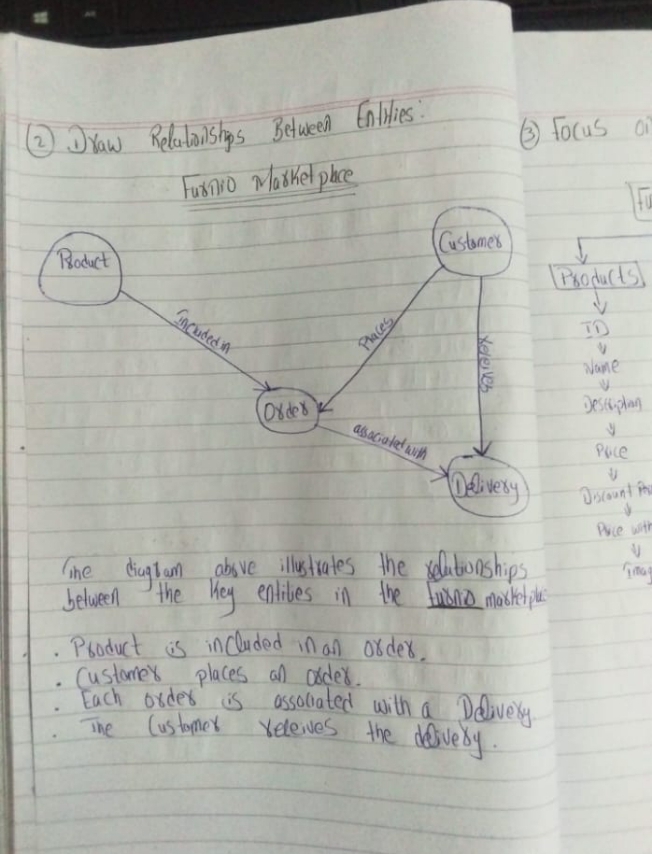 ② Draw Relationships Between Entities:
Furnio Marketplace
Product
Customer
Included in
Places
receives
Order
associated with
Delivery
The diagram above illustrates the relationships
between the key entities in the Furnio marketplace
. Product is included in an order.
. Customer places an order.
. Each order is associated with a Delivery
. The Customer receives the delivery.
③ Focus on
Fu
Products
ID
Name
Description
Price
Discount
Price with
Imag